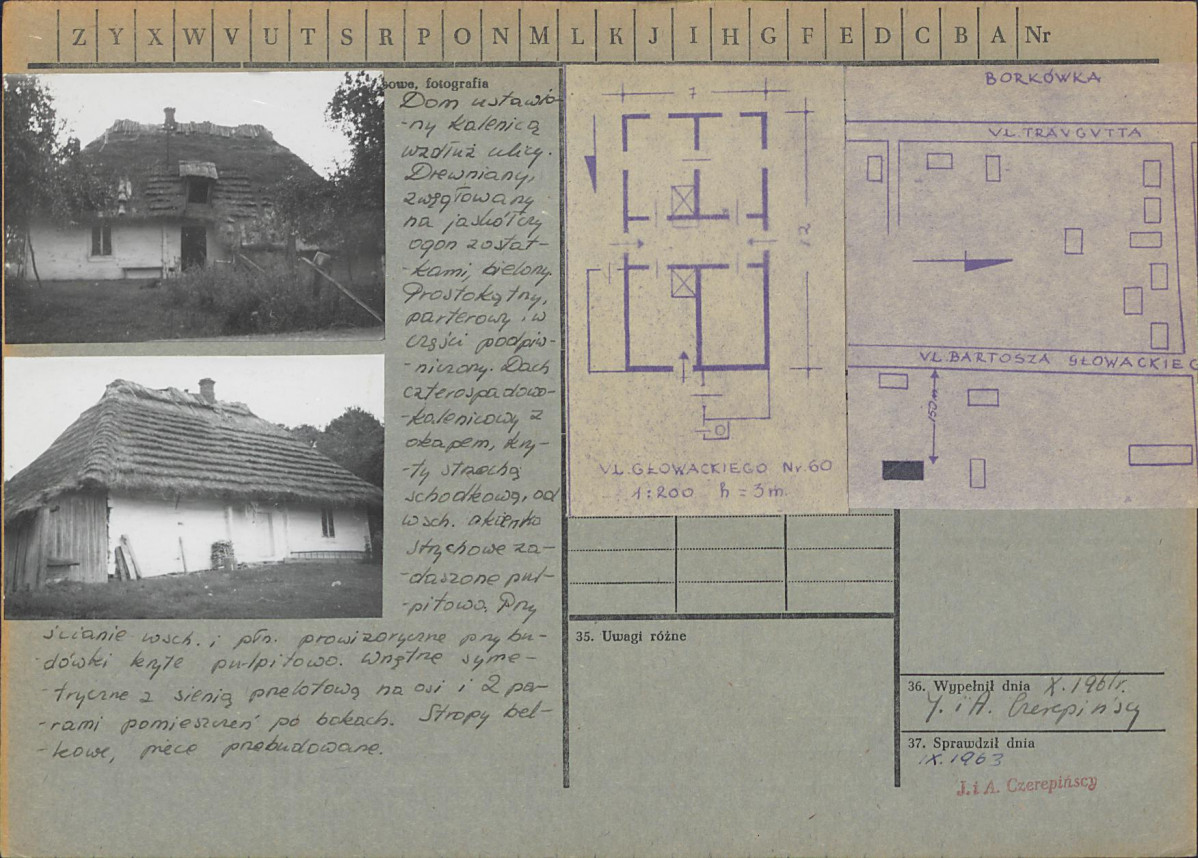 Z Y X W V U T S R P O N M L K J I H G F E D C B A Nr
sowe, fotografia
Dom ustawio-
-ny kalenicą
wzdłuż ulicy.
Drewniany,
zwęgłowany
na jaskółczy
ogon z ostat-
-kami, bielony.
Prostokątny,
parterowy, w
części podpiw-
-niczony. Dach
czterospadowo-
-kalenicowy z
okapem, kry-
-ty strzechą
schodkową, od
wsch. okienko
strychowe za-
-daszone pul-
-pitowo. Przy
ścianie wsch. i płn. prowizoryczne przybu-
dówki kryte pulpitowo. Wnętrze syme-
-tryczne z sienią przelotową na osi i 2 pa-
-rami pomieszczeń po bokach. Stropy bel-
-kowe, piece przebudowane.
7
12
UL. GŁOWACKIEGO Nr. 60
1:200 h = 3 m.
BORKÓWKA
UL. TRAUGUTTA
UL. BARTOSZA GŁOWACKIEG
150m
35. Uwagi różne
36. Wypełnił dnia X. 1961r.
J. i A. Czerepińscy
37. Sprawdził dnia
IX. 1963
J. i A. Czerepińscy